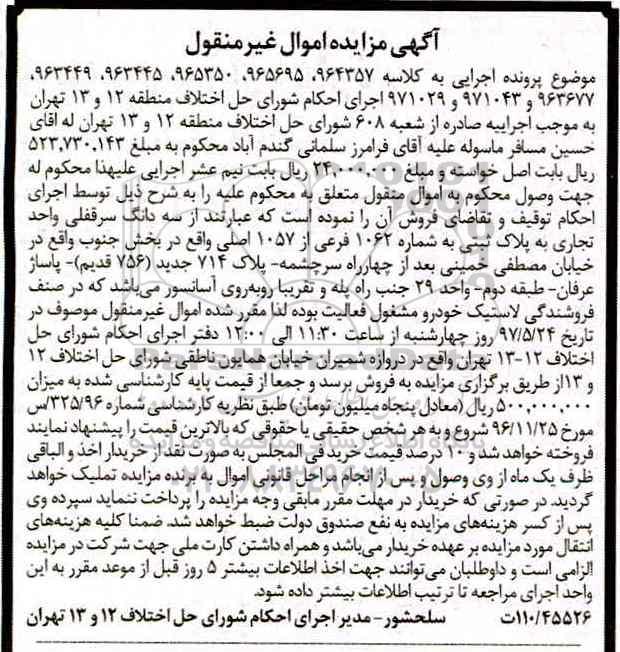 آگهی مزایده اموال غیر منقول
موضوع پرونده اجرایی به کلاسه ۹۶۴۳۵۷، ۹۶۵۶۹۵، ۹۶۵۳۵۰، ۹۶۳۴۴۵، ۹۶۳۴۴۹،
۹۶۳۶۷۷ و ۹۷۱۰۴۳ و ۹۷۱۰۲۹ اجرای احکام شورای حل اختلاف منطقه ۱۲ و ۱۳ تهران
به موجب اجراییه صادره از شعبه ۶۰۸ شورای حل اختلاف منطقه ۱۲ و ۱۳ تهران له اقای
حسین مسافر ماسوله علیه آقای فرامرز سلمانی گندم آباد محکوم به مبلغ ۵۲۳,۷۳۰,۱۴۳
ریال بابت اصل خواسته و مبلغ ۲۴,۰۰۰,۰۰۰ ریال بابت نیم عشر اجرایی علیهذا محکوم له
جهت وصول محکوم به اموال منقول متعلق به محکوم علیه را به شرح ذیل توسط اجرای
احکام توقیف و تقاضای فروش آن را نموده است که عبارتند از سه دانگ سرقفلی واحد
تجاری به پلاک ثبتی به شماره ۱۰۶۲ فرعی از ۱۰۵۷ اصلی واقع در بخش جنوب واقع در
خیابان مصطفی خمینی بعد از چهارراه سرچشمه- پلاک ۷۱۴ جدید (۷۵۶ قدیم)- پاساژ
عرفان- طبقه دوم- واحد ۲۹ جنب راه پله و تقریبا روبه‌روی آسانسور می‌باشد که در صنف
فروشندگی لاستیک خودرو مشغول فعالیت بوده لذا مقرر شده اموال غیرمنقول موصوف در
تاریخ ۹۷/۵/۲۴ روز چهارشنبه از ساعت ۱۱:۳۰ الی ۱۲:۰۰ دفتر اجرای احکام شورای حل
اختلاف ۱۲-۱۳ تهران واقع در دروازه شمیران خیابان همایون ناطقی شورای حل اختلاف ۱۲
و ۱۳از طریق برگزاری مزایده به فروش برسد و جمعا از قیمت پایه کارشناسی شده به میزان
۵۰۰,۰۰۰,۰۰۰ ریال (معادل پنجاه میلیون تومان) طبق نظریه کارشناسی شماره ۳۲۵/۹۶/س
مورخ ۹۶/۱۱/۲۵ شروع و به هر شخص حقیقی یا حقوقی که بالاترین قیمت را پیشنهاد نمایند
فروخته خواهد شد و ۱۰ درصد قیمت خرید فی المجلس به صورت نقد از خریدار اخذ و الباقی
ظرف یک ماه از وی وصول و پس از انجام مراحل قانونی اموال به برنده مزایده تملیک خواهد
گردید. در صورتی که خریدار در مهلت مقرر مابقی وجه مزایده را پرداخت ننماید سپرده وی
پس از کسر هزینه‌های مزایده به نفع صندوق دولت ضبط خواهد شد. ضمنا کلیه هزینه‌های
انتقال مورد مزایده بر عهده خریدار می‌باشد و همراه داشتن کارت ملی جهت شرکت در مزایده
الزامی است و داوطلبان می‌توانند جهت اخذ اطلاعات بیشتر ۵ روز قبل از موعد مقرر به این
واحد اجرای مراجعه تا ترتیب اطلاعات بیشتر داده شود.
۱۱۰/۴۵۵۲۶ت سلحشور - مدیر اجرای احکام شورای حل اختلاف ۱۲ و ۱۳ تهران